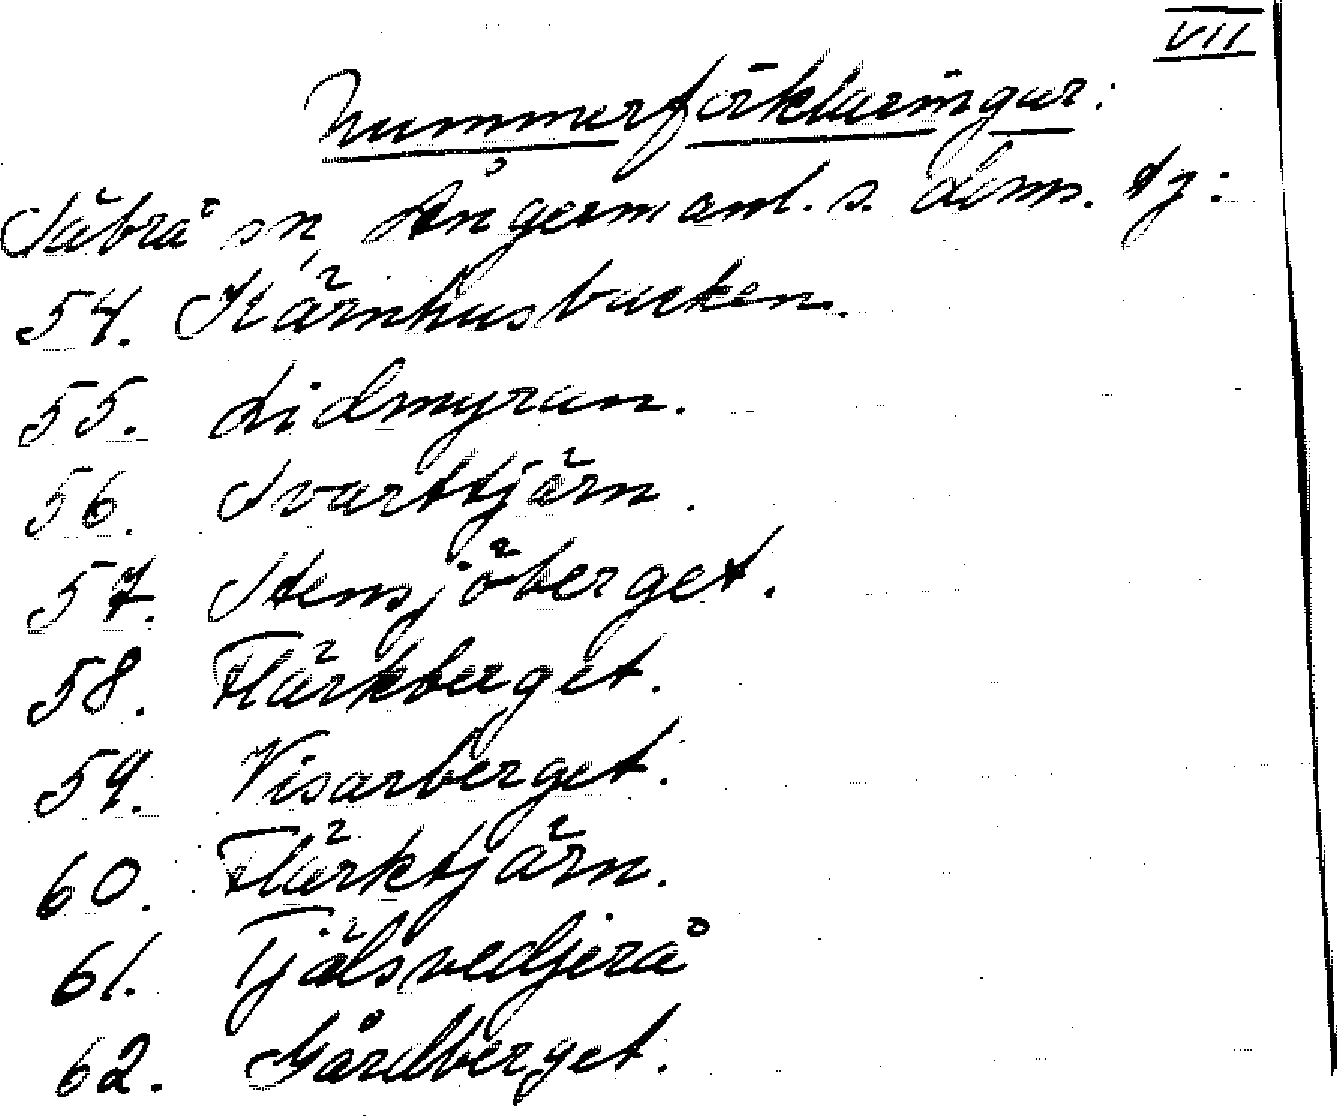 VII
Nummerförklaringar:
Säbrå sn, Ångermanl. s. doms. tj:
54. Kärnhusbacken.
55. Lidmyran.
56. Svarttjärn.
57. Stensjöberget.
58. Flärkberget.
59. Visarberget.
60. Flärktjärn.
61. Tjälsvedjerå
62. Gårdberget.